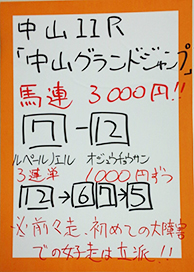 中山11R
「中山グランドジャンプ」
馬連 3000円!!
7-12
ルペールノエル オジュウチョウサン
3連単 1000円ずつ
12→67→5
※前々走、初めての大障害
での好走は立派!!